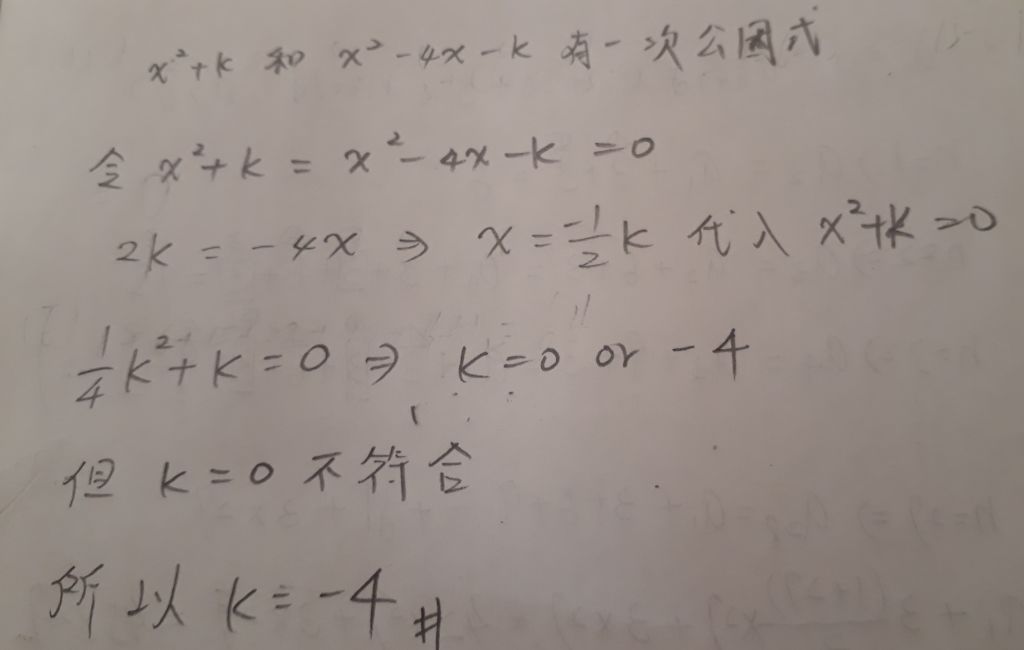 x²+k 和 x²-4x-k 有一次公因式
令 x²+k = x²-4x-k =0
2k = -4x ⇒ x = -1/2 k 代入 x²+k=0
1/4 k²+k=0 ⇒ k=0 or -4
但 k=0 不符合
所以 k=-4 #